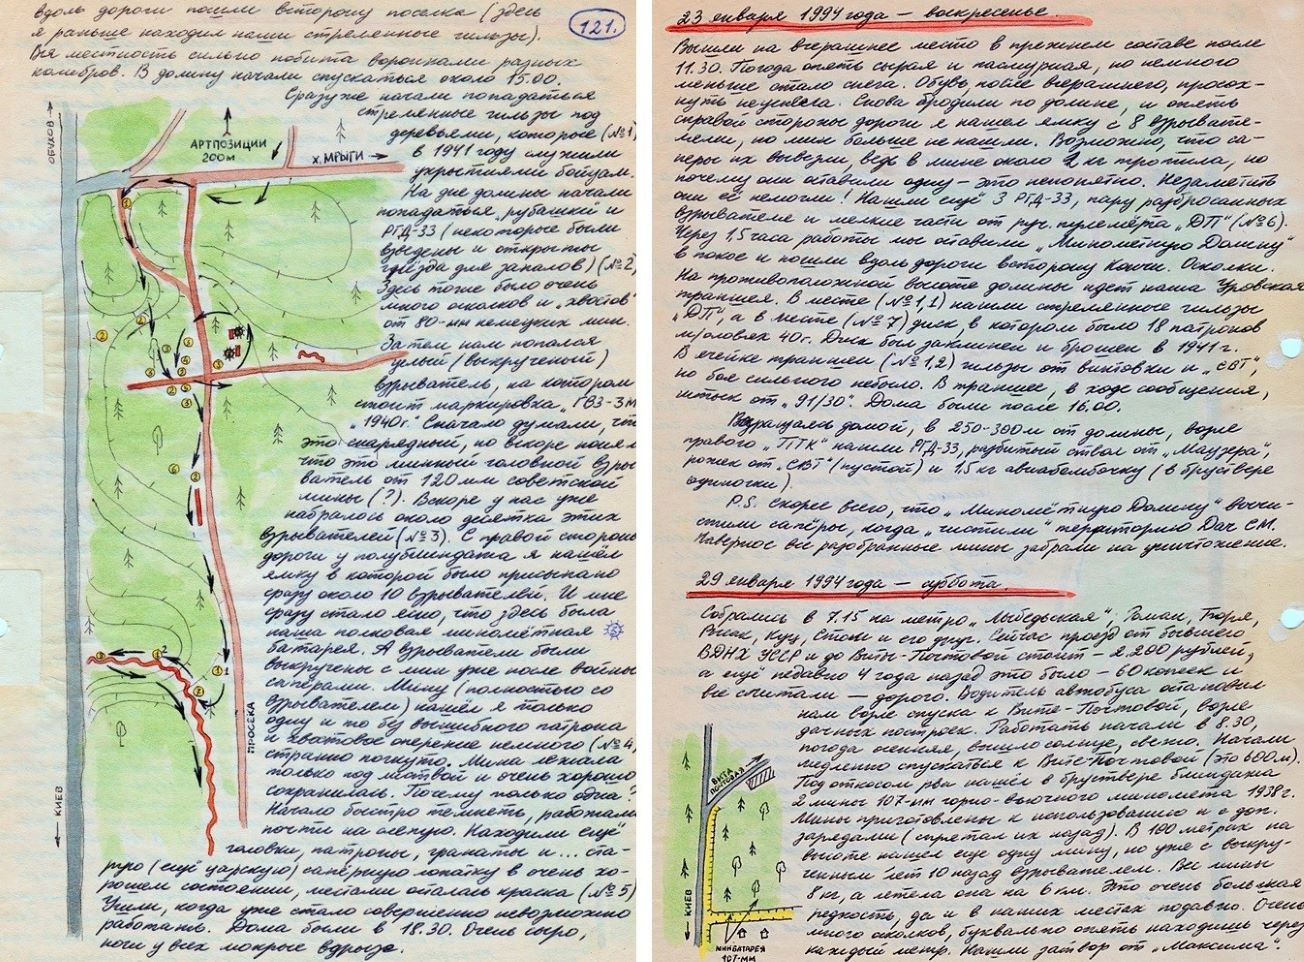 вдоль дороги пошли в сторону поселка (здесь
я раньше находил наши стрелянные гильзы).
Вся местность сильно побита воронками разных
калибров. В долину начали спускаться около 15.00.
121.
Сразу же начали попадаться
стрелянные гильзы под
деревьями, которые (№1)
в 1941 году служили
укрытиями бойцам.
На дне долины начали
попадаться „рубашки" и
РГД-33 (некоторые были
взведены и открыты
гнёзда для запалов) (№2)
Здесь тоже было очень
много осколков и „хвостов"
от 80-мм немецких мин.
Затем нам попался
целый (выкрученый)
взрыватель, на котором
стоит маркировка „ГВЗ-3м
„1940г. Сначало думали, что
это снарядный, но вскоре поняли
что это минный головной взры
ватель от 120мм советской
мины (?). Вскоре у нас уже
набралось около десятка этих
взрывателей (№3). С правой стороны
дороги у полублиндажа я нашёл
ямку в которой было присыпано
сразу около 10 взрывателей. И мне
сразу стало ясно, что здесь была
наша полковая миномётная
батарея. А взрыватели были
выкручены с мин уже после войны
сапёрами. Мину (полностью со
взрывателем) нашёл я только
одну и то без вышибного патрона
и хвостовое оперение немного (№4)
странно погнуто. Мина лежала
только под листвой и очень хорошо
сохранилась. Почему только одна?
Начало быстро темнеть, работали
почти на ощупую. Находили ещё
головки, патроны, гранаты и... ста-
рую (ещё царскую) сапёрную лопатку в очень хо-
рошем состоянии, местами осталась краска (№5)
Ушли, когда уже стало совершенно невозможно
работать. Дома были в 18.30. Очень сыро,
ноги у всех мокрые вдрызг.
ОБУХОВ
АРТПОЗИЦИИ
200м
х. МРЫГИ
ПРОСЕКА
КИЕВ
23 января 1994 года – воскресенье
Вышли на вчерашнее место в прежнем составе после
11.30. Погода опять сырая и пасмурная, но немного
меньше стало снега. Обувь, после вчерашнего, просох-
нуть неуспела. Снова бродили по долине, и опять
справой стороны дороги я нашел ямку с 8 взрывате-
лями, но мин больше не нашли. Возможно, что са-
перы их вывезли, ведь в мине около 2 кг тротила, но
почему они оставили одну – это непонятно. Незаметить
они её немогли! Нашли ещё 3 РГД-33, пару разбросанных
взрывателей и мелкие части от руч. пулемёта „ДП" (№6).
Через 1,5 часа работы мы оставили „Миномётную Долину"
в покое и пошли вдоль дороги в сторону Кончи. Осколки.
На противоположной высоте долины идет наша Уровская
траншея. В месте (№1,1) нашли стрелянные гильзы
„ДП", а в месте (№7) диск, в котором было 18 патронов
40г. Диск был заклинен и брошен в 1941г.
В ячейке траншеи (№1,2) гильзы от винтовки и „СВТ",
но боя сильного небыло. В траншее, в ходе сообщения,
штык от „91/30". Дома были после 16.00.
Возращаясь домой, в 250-300м от долины, возле
правого „ПТК" нашли РГД-33, разбитый ствол от „Маузера",
рожек от „СВТ" (пустой) и 1,5 кг авиабомбочку (в бруствере
одиночки).
P.S. Скорее всего, что „Миномётную Долину" вычи-
стили сапёры, когда „чистили" территорию Дач СМ.
Наверное все разобранные мины забрали на уничтожение.
29 января 1994 года – суббота.
Собрались в 7.15 на метро „Лыбедьская", Роман, Гюря,
Куц, Стош и его друг. Сейчас проезд от бывшего
ВДНХ УССР и до Виты-Почтовой стоит – 2.200 рублей,
а ещё недавно 4 года назад это было – 60 копеек и
все считали – дорого. Водитель автобуса остановил
нам возле спуска к Вите-Почтовой, возле
дачных построек. Работать начали в 8.30,
погода осенняя, вышло солнце, свежо. Начали
медленно спускаться к Вите-Почтовой (это 600м).
Под откосом рва нашёл в бруствере блиндажа
2 мины 107-мм горно-вьючного миномета 1938г.
Мины приготовлены к использованию и с доп.
зарядами (спрятал их назад). В 100 метрах на
высоте нашёл еще одну мину, но уже с выкру-
ченным лет 10 назад взрывателем. Вес мины
8кг, а летела она на 6 км. Это очень большая
редкость, да и в наших местах подавно. Очень
много осколков, буквально опять находишь через
каждый метр. Нашли затвор от „Максима".
ВИТА
ПОЧТОВАЯ
КИЕВ
МИНБАТАРЕЯ
107-ММ